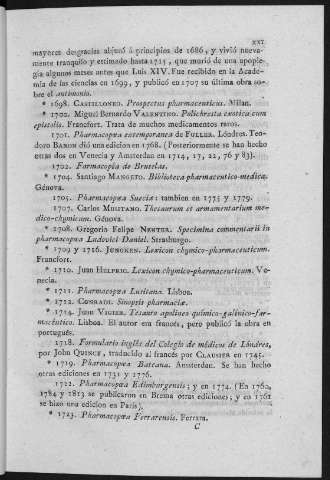 XXI
mayores desgracias abjuró á principios de 1686, y vivió nueva-
mente tranquilo y estimado hasta 1715, que murió de una apople-
gía algunos meses antes que Luis XIV. Fue recibido en la Acade-
mia de las ciencias en 1699, y publicó en 1707 su última obra so-
bre el antimonio.
* 1698. CASTILLONEO. Prospectus pharmaceuticus. Milan.
* 1702. Miguel Bernardo VALENTINO. Polichresta exotica cum
epistolis. Francfort. Trata de muchos medicamentos raros.
1701. Pharmacopœa extemporanea de FULLER. Lóndres. Teo-
doro BARON dió una edicion en 1768. (Posteriormente se han hecho
otras dos en Venecia y Amsterdan en 1714, 17, 22, 76 y 83).
1702. Farmacopéa de Bruselas.
* 1704. Santiago MANGETO. Biblioteca pharmaceutico-medica.
Génova.
1705. Pharmacopœa Sueciæ: tambien en 1775 y 1779.
1707. Carlos MUSITANO. Thesaurum et armamentarium me-
dico-chymicum. Génova.
* 1708. Gregorio Felipe NENTER. Specimina commentarii in
pharmacopœa Ludovici Daniel. Strasburgo.
* 1709 y 1716. JUNGKEN. Lexicon chymico-pharmaceuticum.
Francfort.
* 1710. Juan HELFRIC. Lexicon chymico-pharmaceuticum. Ve-
necia.
* 1711. Pharmacopœa Lusitana. Lisboa.
* 1712. CONRADI. Sinopsis pharmaciæ.
* 1714. Juan VIGIER. Tesauro apolineo químico-galénico-far-
macéutico. Lisboa. El autor era francés, pero publicó la obra en
portugués.
1718. Formulario inglés del Colegio de médicos de Lóndres,
por John QUINCY, traducido al francés por CLAUSIER en 1745.
* 1719. Pharmacopœa Bateana. Amsterdan. Se han hecho
otras ediciones en 1731 y 1776.
1722. Pharmacopœa Edimburgensis; y en 1774. (En 1760,
1784 y 1813 se publicaron en Brema otras ediciones, y en 1762
se hizo una edicion en Paris).
* 1723. Pharmacopœa Ferrarensis. Ferrara.
C